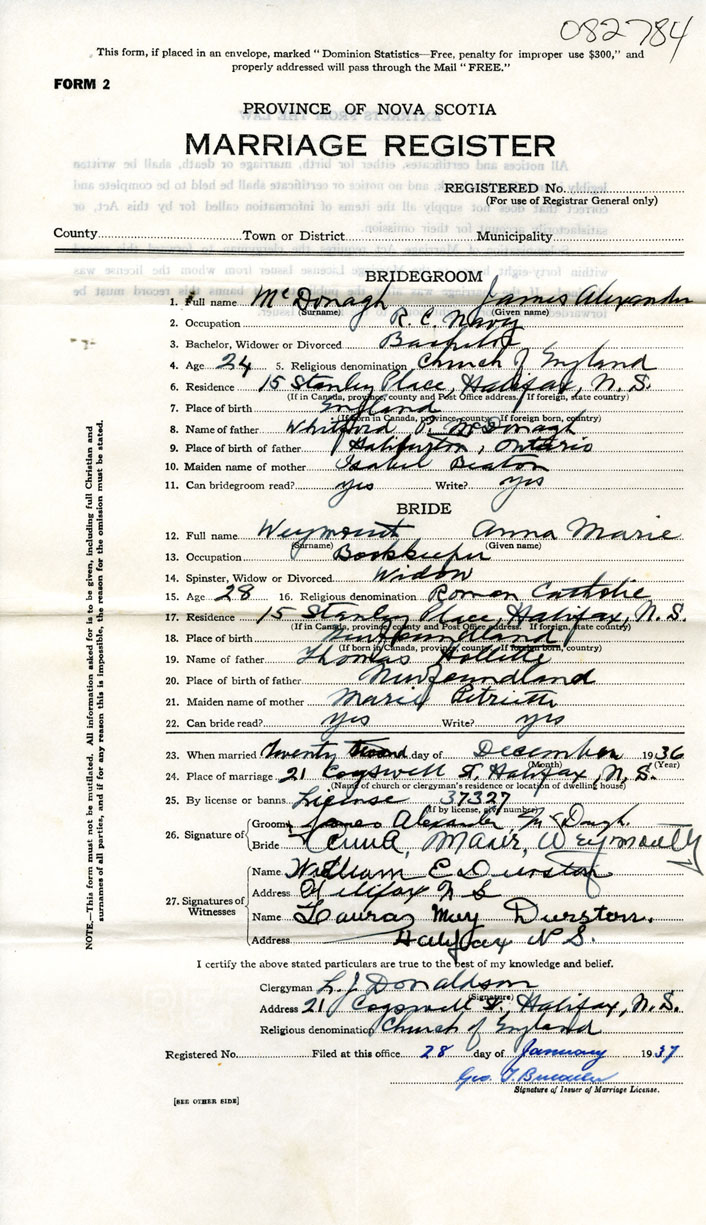 082784
This form, if placed in an envelope, marked "Dominion Statistics—Free, penalty for improper use $300," and
properly addressed will pass through the Mail "FREE."
FORM 2
PROVINCE OF NOVA SCOTIA
MARRIAGE REGISTER
REGISTERED No.
(For use of Registrar General only)
County Town or District Municipality
BRIDEGROOM
1. Full name McDonagh James Alexander
(Surname) (Given name)
2. Occupation R. C. Navy
3. Bachelor, Widower or Divorced Bachelor
4. Age 24 5. Religious denomination Church of England
6. Residence 15 Stanley Place, Halifax, N. S.
(If in Canada, province, county and Post Office address. If foreign, state country)
7. Place of birth England
(If born in Canada, province, county, or country; If foreign born, country)
8. Name of father Whitford P. McDonagh
9. Place of birth of father Haliburton, Ontario
10. Maiden name of mother Isabel Beaton
11. Can bridegroom read? yes Write? yes
BRIDE
12. Full name Weymouth Anna Marie
(Surname) (Given name)
13. Occupation Bookkeeper
14. Spinster, Widow or Divorced Widow
15. Age 28 16. Religious denomination Roman Catholic
17. Residence 15 Stanley Place, Halifax, N. S.
(If in Canada, province, county and Post Office address. If foreign, state country)
18. Place of birth Newfoundland
(If born in Canada, province, county. If foreign born, country)
19. Name of father Thomas
20. Place of birth of father Newfoundland
21. Maiden name of mother Marie
22. Can bride read? yes Write? yes
23. When married Twenty Second day of December 1936
(Month) (Year)
24. Place of marriage 21 Cogswell St, Halifax, N. S.
(Name of church or clergyman's residence or location of dwelling house)
25. By license or banns License 37327
(If by license, give number)
26. Signature of Groom James Alexander McDonagh
Bride Anna, Marie, Weymouth
27. Signatures of Witnesses
Name William E Durston
Address Halifax N S
Name Laura May Durston.
Address Halifax N S.
I certify the above stated particulars are true to the best of my knowledge and belief.
Clergyman L. J Donaldson
(Signature)
Address 21 Cogswell St, Halifax, N. S.
Religious denomination Church of England
Registered No. Filed at this office 28 day of January 1937
Geo. T.
Signature of Issuer of Marriage License.
[SEE OTHER SIDE]
NOTE.—This form must not be mutilated. All information asked for is to be given, including full Christian and
surnames of all parties, and if for any reason this is impossible, the reason for the omission must be stated.